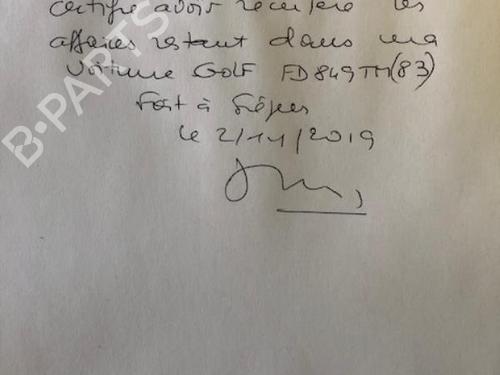 certifie avoir récupéré les
affaires restant dans ma
voiture GOLF FD849TM(83)
Fait à Fréjus
le 2/11/2019
B-PARTS